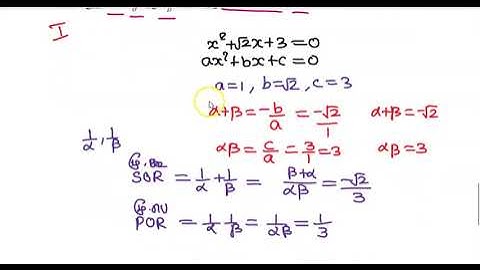 I
x²+√2x+3=0
ax²+bx+c=0
a=1, b=√2, c=3
α+β = -b/a = -√2/1   α+β=-√2
αβ = c/a = 3/1 = 3   αβ=3
1/α, 1/β
SOR = 1/α + 1/β = β+α/αβ = -√2/3
POR = 1/α 1/β = 1/αβ = 1/3